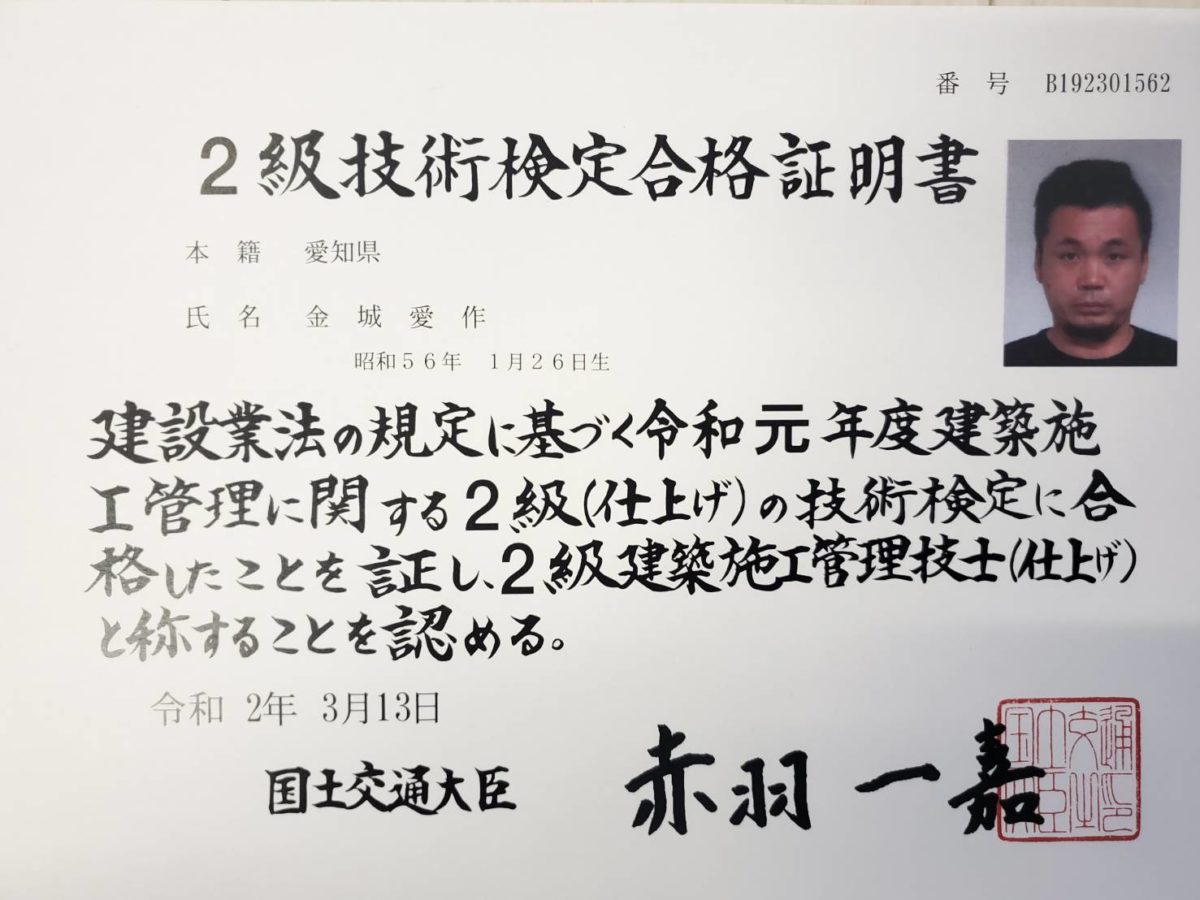 番 号 B192301562
2級技術検定合格証明書
本 籍 愛知県
氏 名 金 城 愛 作
昭和56年 1月26日生
建設業法の規定に基づく令和元年度建築施
工管理に関する2級(仕上げ)の技術検定に合
格したことを証し、2級建築施工管理技士(仕上げ)
と称することを認める。
令和 2年 3月13日
国土交通大臣 赤羽一嘉
国土交通大臣